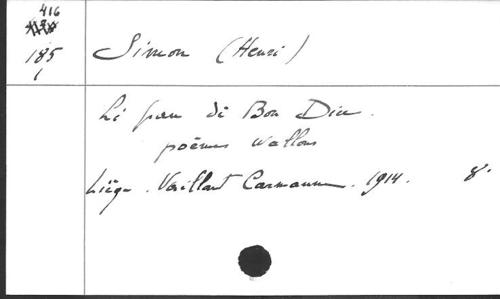 416
185
1
Simon (Henri)
Li pan dè Bon Diu.
poèmes wallons
Liège. Vaillant Carmanne. 1914. 8°